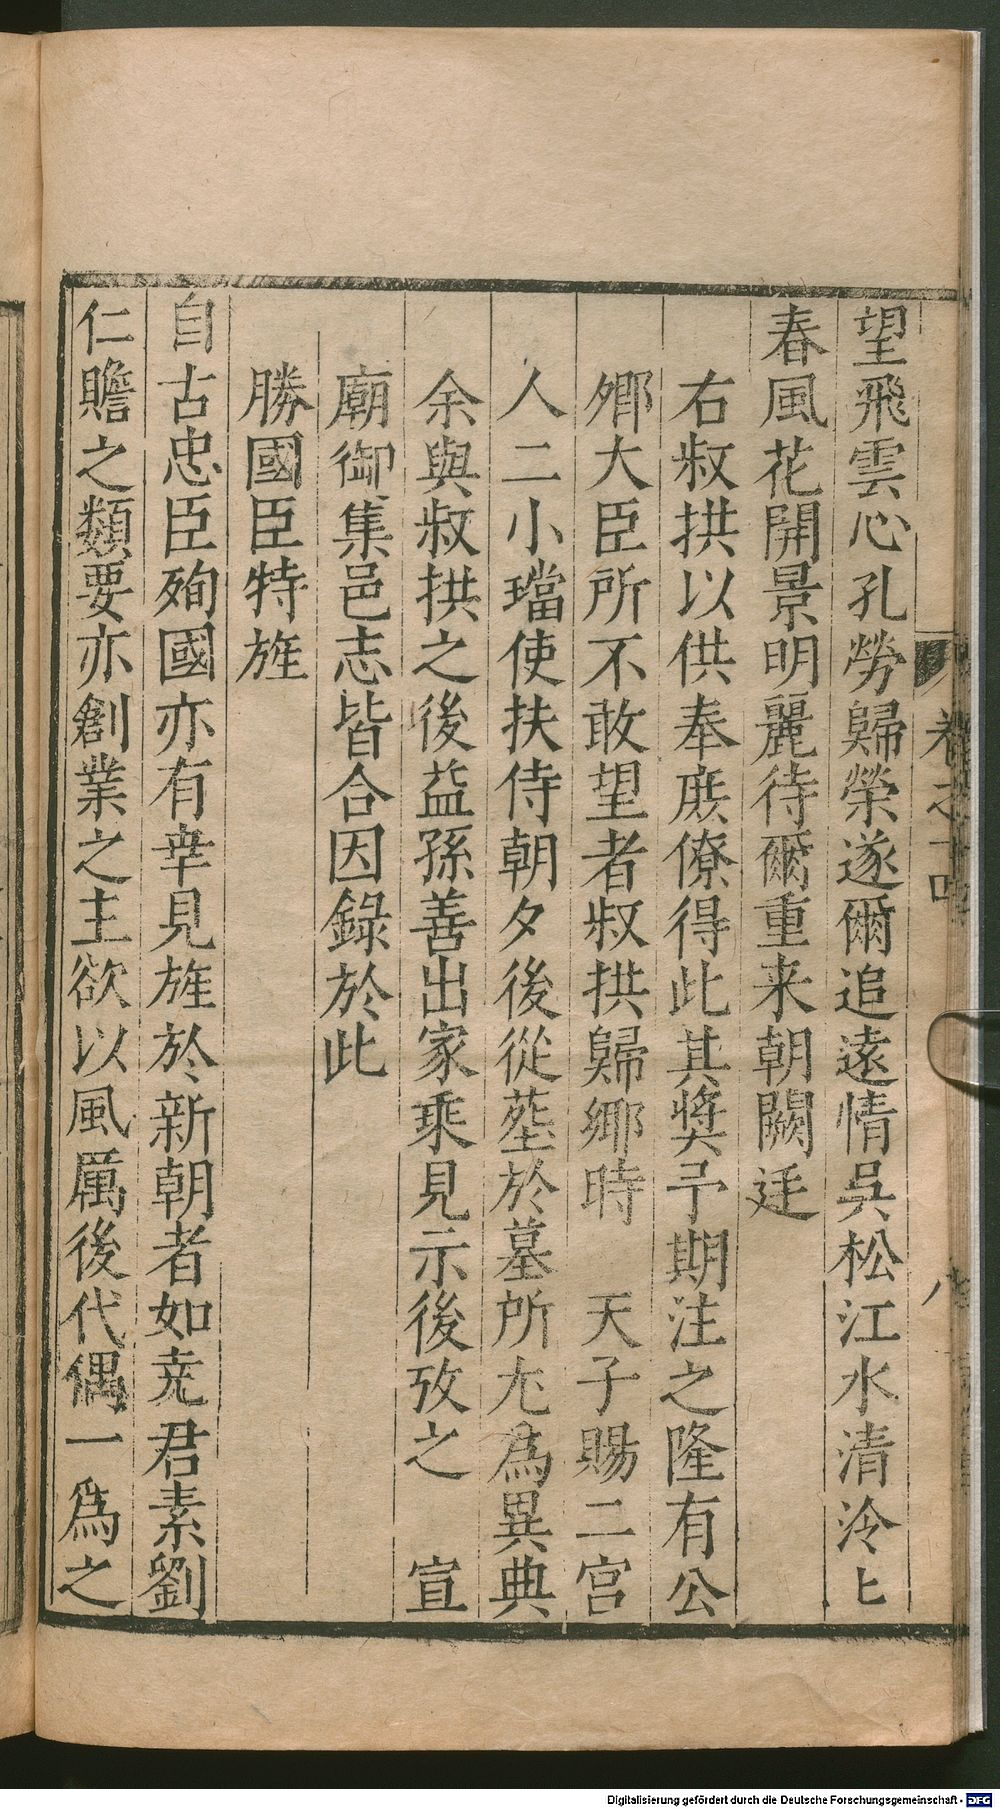 望飛雲心孔勞歸榮遂爾追遠情吳松江水清泠匕
春風花開景明麗待爾重来朝闕廷
右叔拱以供奉庶僚得此其奬予期注之隆有公
卿大臣所不敢望者叔拱歸鄉時　天子賜二宫
人二小璫使扶侍朝夕後從塟於墓所尤為異典
余與叔拱之後益孫善出家乘見示後攷之　宣
廟御集邑志皆合因錄於此
勝國臣特旌
自古忠臣殉國亦有幸見旌於新朝者如尭君素劉
仁贍之類要亦創業之主欲以風厲後代偶一爲之
卷之十
八
Digitalisierung gefördert durch die Deutsche Forschungsgemeinschaft - DFG